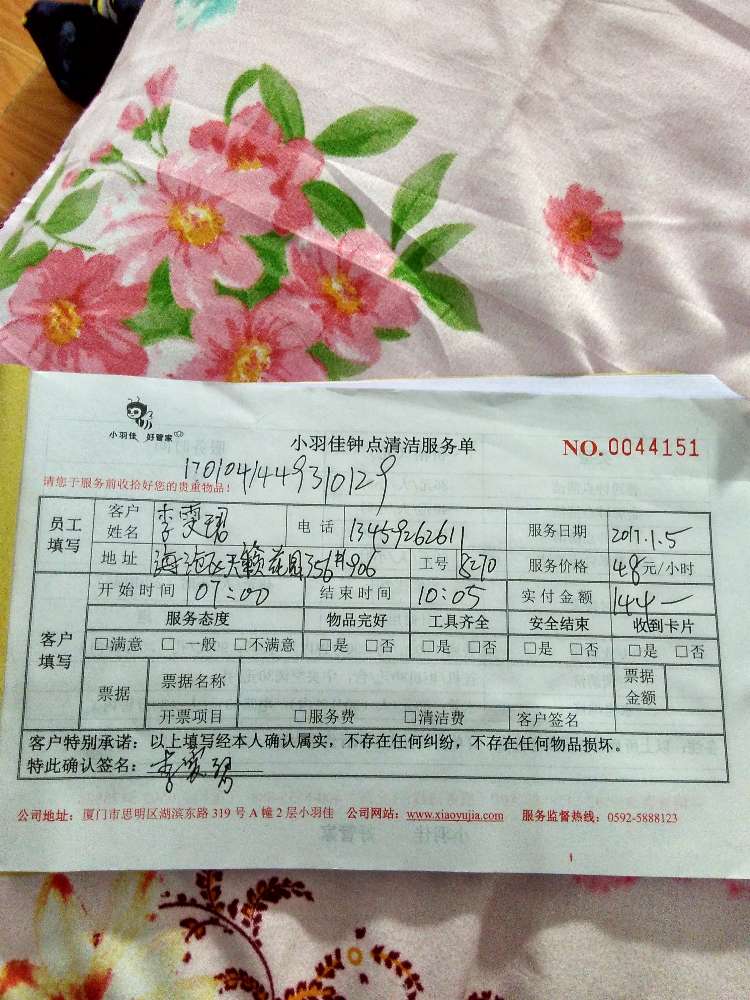 小羽佳 好管家
小羽佳钟点清洁服务单
NO.0044151
1701041449310129
请您于服务前收拾好您的贵重物品!
员工填写 客户姓名 李雯 电话 13459262611 服务日期 2017.1.5
地址 海沧区天籁花园356#906 工号 8270 服务价格 48元/小时
开始时间 07:00 结束时间 10:05 实付金额 144—
客户填写 服务态度 物品完好 工具齐全 安全结束 收到卡片
□满意 □一般 □不满意 □是 □否 □是 □否 □是 □否 □是 □否
票据 票据名称 票据金额
开票项目 □服务费 □清洁费 客户签名
客户特别承诺:以上填写经本人确认属实,不存在任何纠纷,不存在任何物品损坏。
特此确认签名:李雯
公司地址:厦门市思明区湖滨东路 319 号 A 幢 2 层小羽佳 公司网站:www.xiaoyujia.com 服务监督热线:0592-5888123